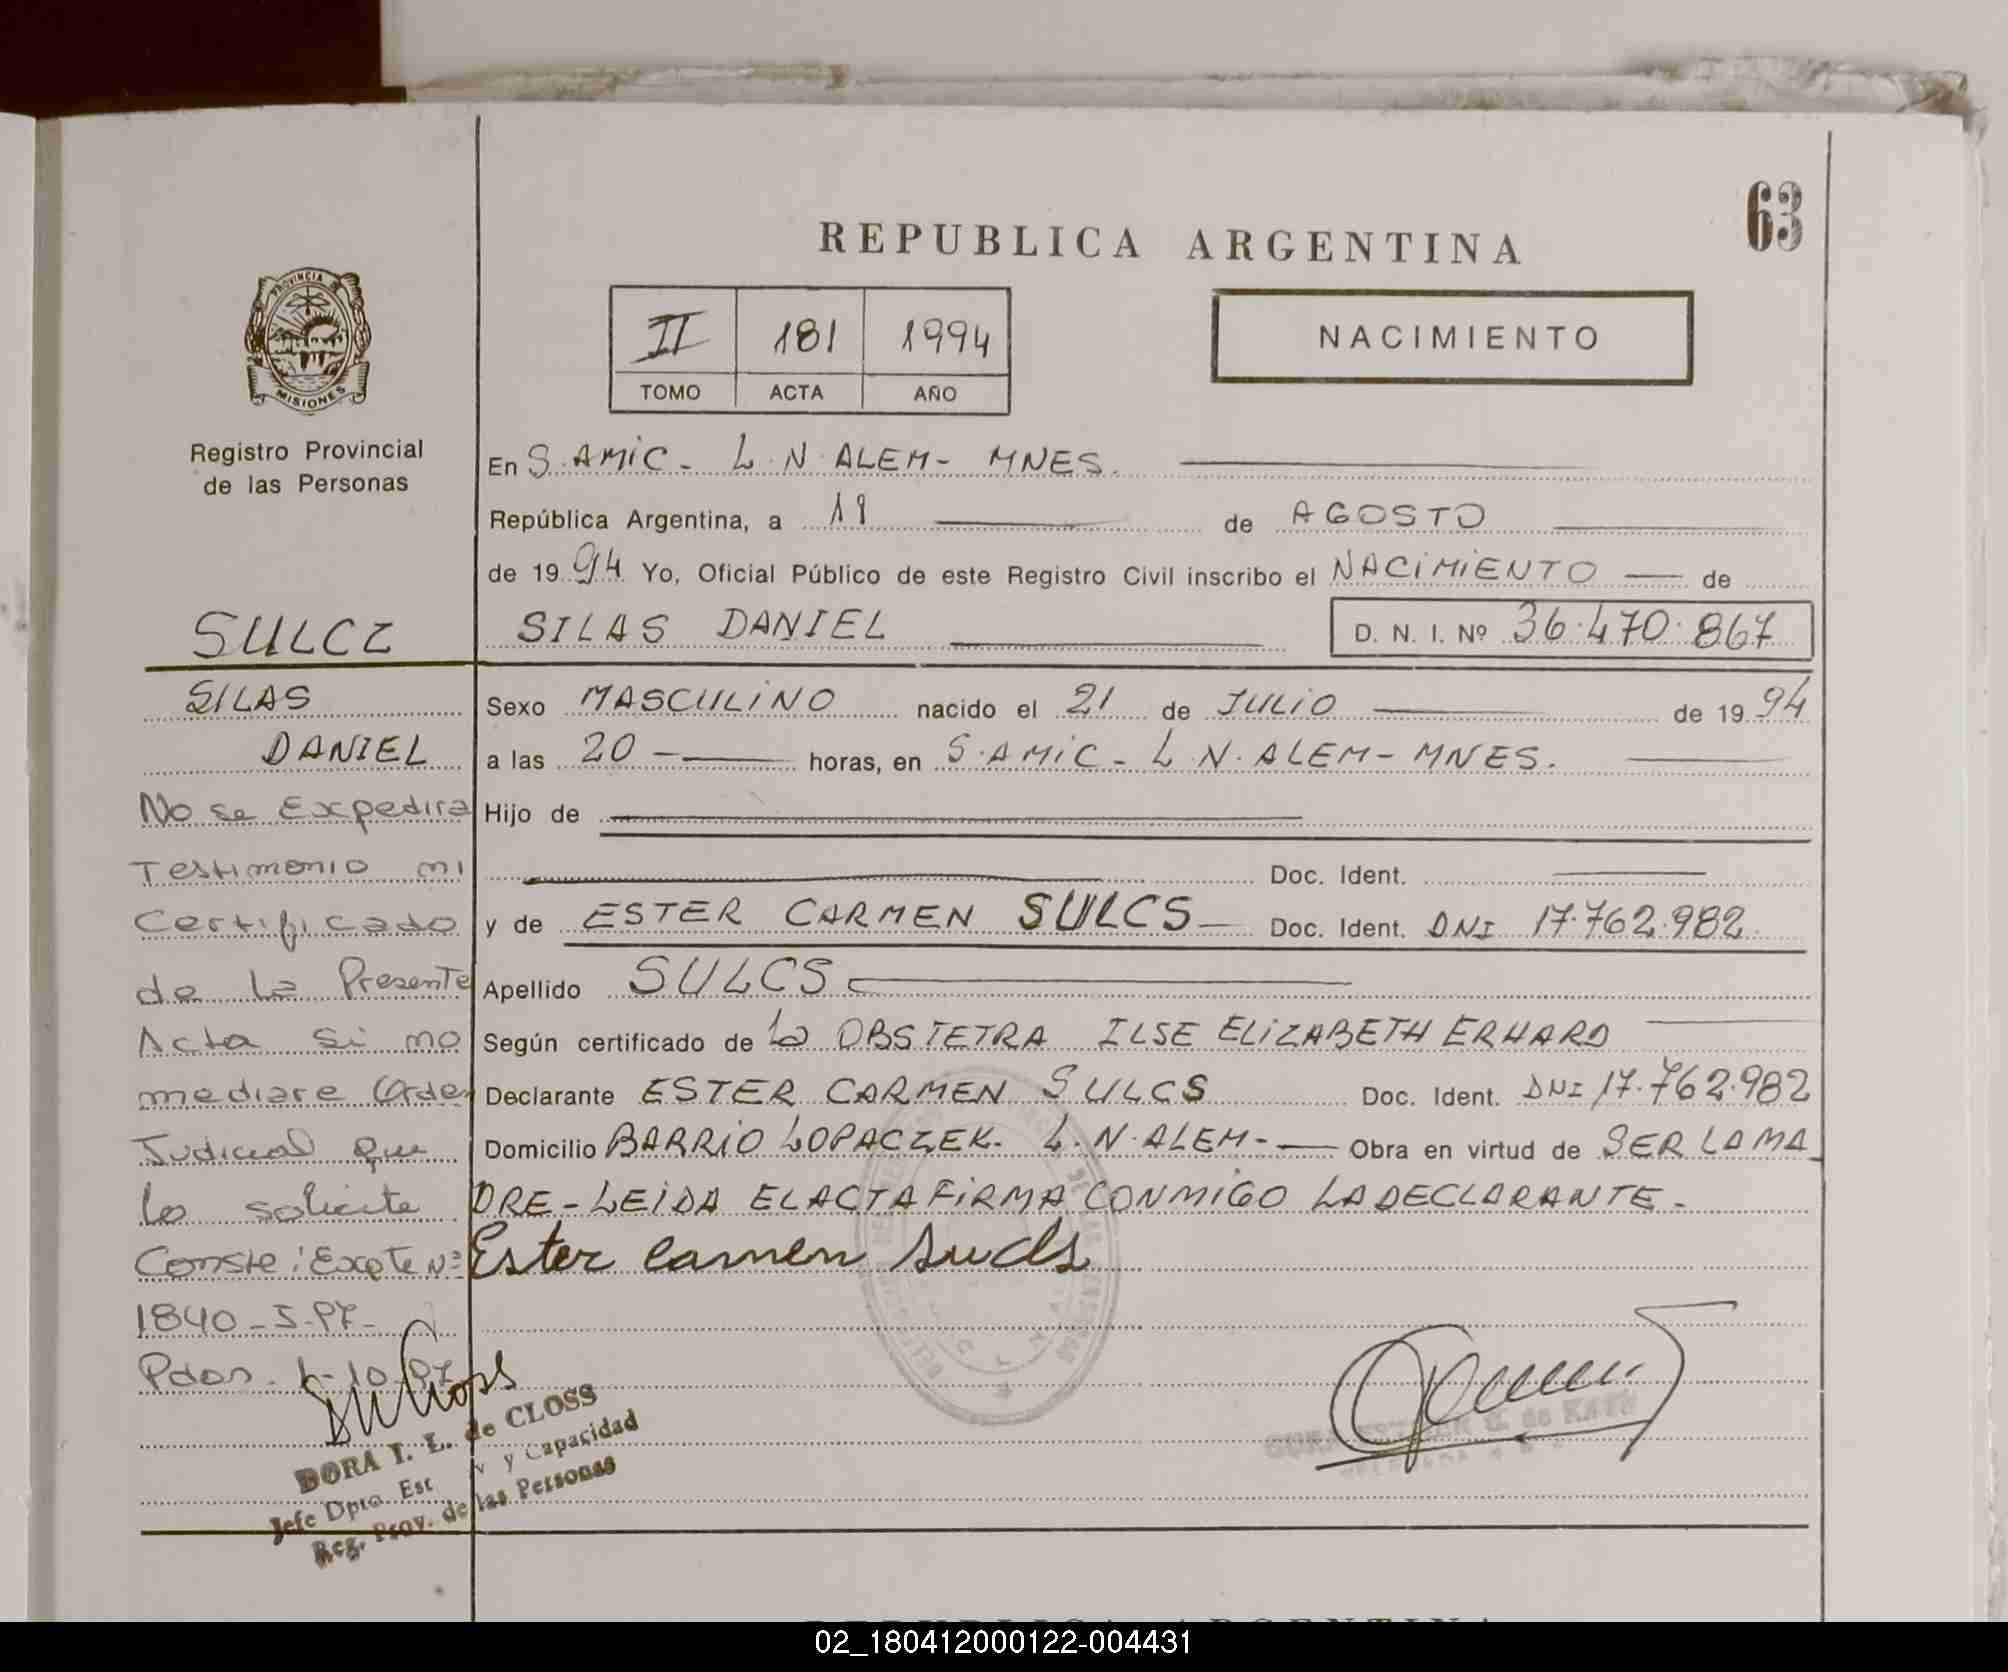 63
REPUBLICA ARGENTINA
PROVINCIA DE
MISIONES
II 181 1994
TOMO ACTA AÑO
NACIMIENTO
Registro Provincial
de las Personas
En S. AMIC - L. N. ALEM - MNES.
República Argentina, a 19 de AGOSTO
de 1994 Yo, Oficial Público de este Registro Civil inscribo el NACIMIENTO de
SILAS DANIEL D. N. I. Nº 36.470.867
Sexo MASCULINO nacido el 21 de JULIO de 1994
a las 20 horas, en S. AMIC - L. N. ALEM - MNES.
Hijo de
Doc. Ident.
y de ESTER CARMEN SULCS Doc. Ident. DNI 17.762.982
Apellido SULCS
Según certificado de la OBSTETRA ILSE ELIZABETH ERHARD
Declarante ESTER CARMEN SULCS Doc. Ident. DNI 17.762.982
Domicilio BARRIO LOPACZEK. L. N. ALEM - Obra en virtud de SER LA MA
DRE - LEIDA EL ACTA FIRMA CONMIGO LA DECLARANTE -
Ester carmen sucls
SULCZ
SILAS
DANIEL
No se Expedira
Testimonio ni
Certificado
de la Presente
Acta si no
mediare Orden
Judicial que
lo solicite
Conste: Expte Nº
1840-S-97-
Pdas. 1-10-97
DORA I. L. de CLOSS
Jefe Dpto. Est y Capacidad
Reg. Prov. de las Personas
02_180412000122-004431